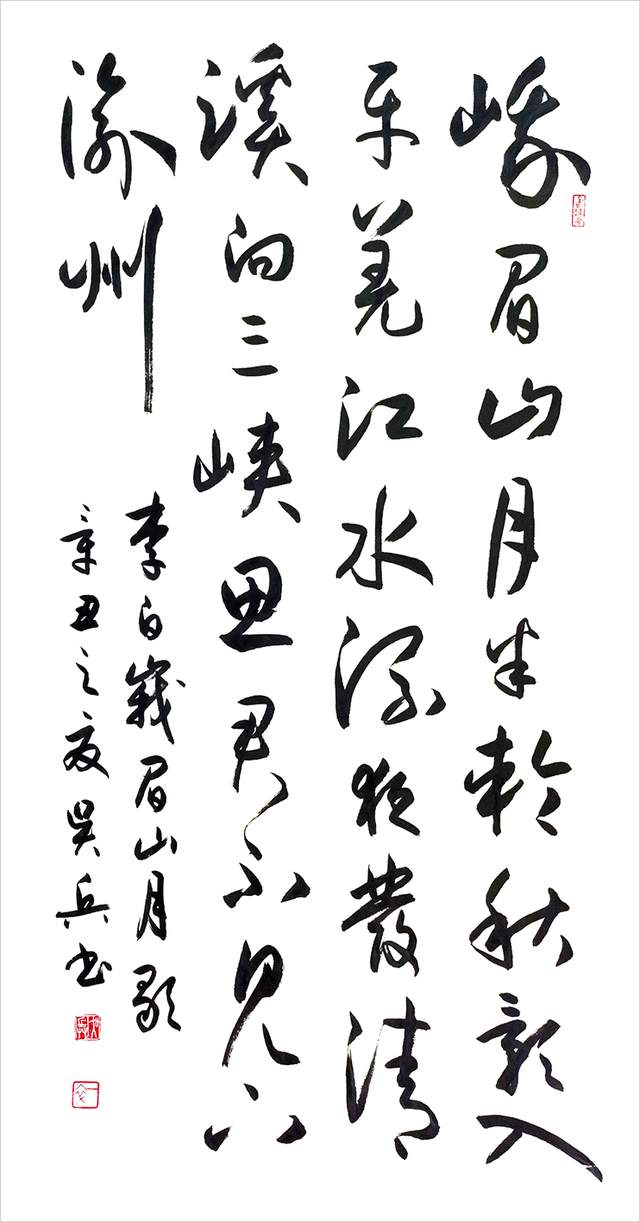 峨眉山月半輪秋影入
平羌江水流夜發清
溪向三峡思君不見下
渝州
李白峩眉山月歌
辛丑之夏吴兵书